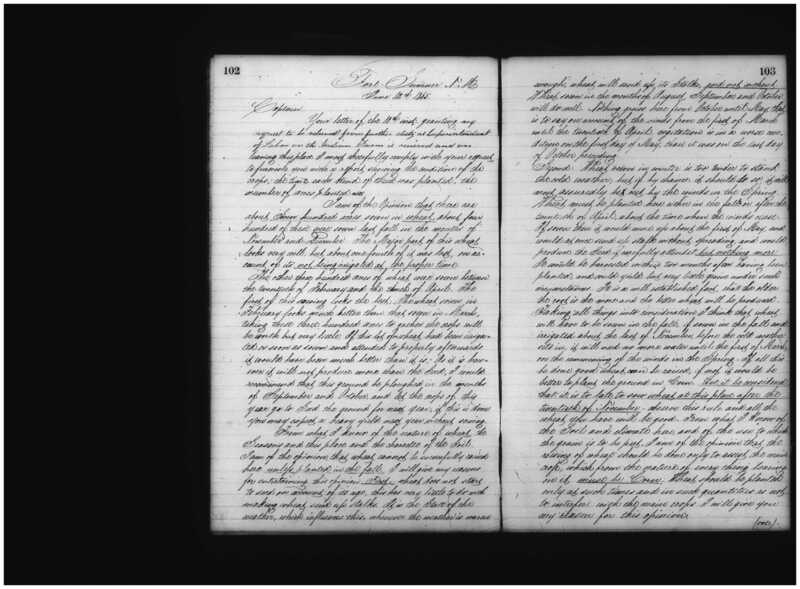 102
Fort Sumner N. M.
June 12th 1865
Captain
Your letter of the 10th inst. granting my
request to be relieved from further duty as Superintendent
of Labor on the Indian Farm is received and ere
leaving this place I most cheerfully comply with your request
to furnish you with a report, showing the condition of the
crops, the time each kind of Seed was planted, the
number of acres planted
I am of the Opinion that there are
about Seven hundred acres sown in wheat, about four
hundred of these were sown last fall in the months of
November and December. The Major part of this wheat
looks very well, but about one fourth of it was lost, on ac-
count of its not being irrigated at the proper time.
The other three hundred acres of wheat were sown between
the twentieth of February and the tenth of April. The
first of this sowing looks the best. The wheat sown in
February looks much better than that sown in March,
taking these three hundred acres to gether the crops will
be worth but very little. If this lot of wheat had been irriga-
ted as soon as sown and attended to properly afterwards
it would have been much better than it is. As it is how-
ever it will not produce more than the Seed, I would
recommend that this ground be ploughed in the months
of September and October and let the crops of this
year go to Seed the ground for next year, if this is done
you may expect a heavy yield next year without sowing.
From what I know of the nature of wheat, the
Seasons and this place and the character of the Soil,
I am of the opinion that wheat cannot be successfully raised
here unless planted in the fall. I will give my reasons
for entertaining this opinion. First, wheat does not start
to seed on account of its age, this has very little to do with
making wheat send up Stalks. It is the State of the
weather, which influences this, whenever the weather is warm
103
enough, wheat will send up its Stalks,
Wheat sown in the months of August September and October
will do well. Nothing grows here from October until May, that
is to say on account of the winds from the first of March
until the twentieth of April, vegetation is in a worse con-
dition on the first day of May, than it was on the last day
of October preceding.
Second. Wheat sown in winter is too tender to stand
the cold weather, but if by chance it should do so, it will
most assuredly be by the winds in the Spring.
Wheat must be planted here either in the fall or after the
twentieth of April, about the time when the winds cease.
If sown then it would come up about the first of May, and
would at once send up stalks without spreading and would
produce the Seed if carefully attended but nothing more.
It would be harvested within two months after being
planted, and would yield but very little grain under such
circumstances. It is a well established fact, that the older
the root is the more and the better wheat will be produced.
Taking all things into consideration I think that wheat
will have to be sown in the fall. If sown in the fall and
irrigated about the last of November, before the cold weather
sets in, it will need no more water until the first of March,
on the commencing of the winds in the Spring. If all this
be done good wheat can be raised, if not, it would be
better to plant the ground in Corn. But it be considered
that it is to late to sow wheat at this place after the
twentieth of November. observe this rule and all the
wheat you have will be good. From what I know of
the Soil and climate here and of the use to which
the grain is to be put, I am of the opinion that the
raising of wheat should be done only to assist the main
crop, which from the nature of every thing bearing
on it must be Corn. Wheat should be planted
only at such times and in such quantities as not
to interfere with the main crops. I will give you
my reason for this opinion.
(over)